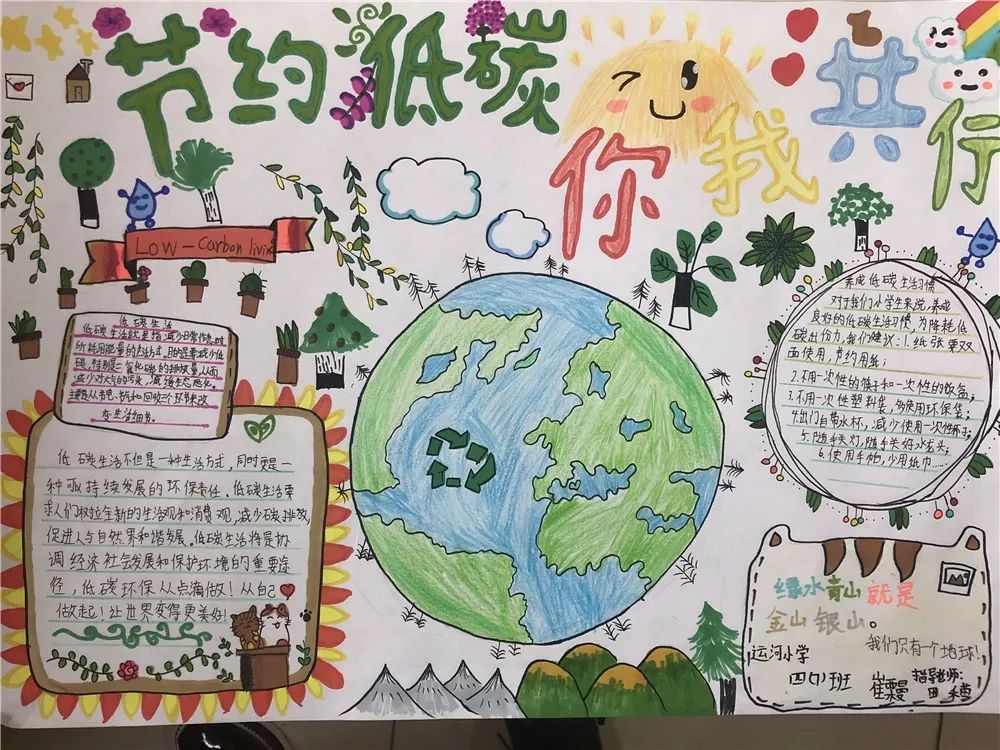 节约低碳
你我共行
Low-Carbon livin
低碳生活
低碳生活就是指减少日常作息时
所耗用能量的生活方式,目的是要减少低
碳,特别是二氧化碳的排放量,从而
减少对大气的污染,减缓生态恶化。
主要是从节电、节气和回收三个环节来改
变生活细节。
低碳生活不但是一种生活方式,同时更是一
种可持续发展的环保责任,低碳生活要
求人们树立全新的生活观和消费观,减少碳排放,
促进人与自然界和谐发展。低碳生活将是协
调经济社会发展和保护环境的重要途
径,低碳环保从点滴做!从自己
做起!让世界变得更美好!
养成低碳生活习惯
对于我们小学生来说,养成
良好的低碳生活习惯,为降耗低
碳出份力,我们建议:1.纸张要双
面使用,节约用纸;
2.不用一次性的筷子和一次性的饭盒;
3.不用一次性塑料袋,多使用环保袋;
4.出门自带水杯,减少使用一次性杯子;
5.随手关灯,随手关好水龙头;
6.使用手帕,少用纸巾……
绿水青山就是
金山银山。
我们只有一个地球!
运河小学
四(1)班
指导老师:
田